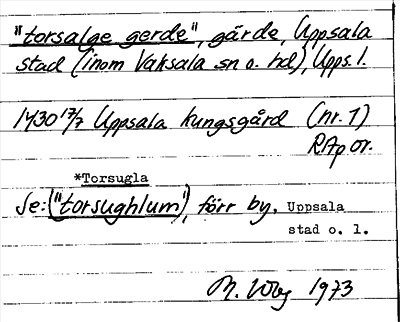 "torsalge gerde", gärde, Uppsala
stad (inom Vaksala sn o. hd), Upps. l.
1430 17/7 Uppsala kungsgård (nr. 1)
RAp or.
*Torsugla
Se: ("torsughlum"), förr by, Uppsala
stad o. l.
M. Wbg 1973